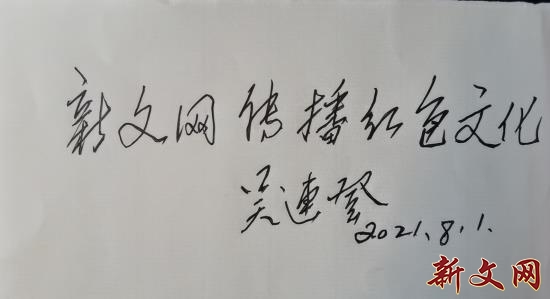 新文网传播红色文化
吴连登
2021.8.1.
新文网